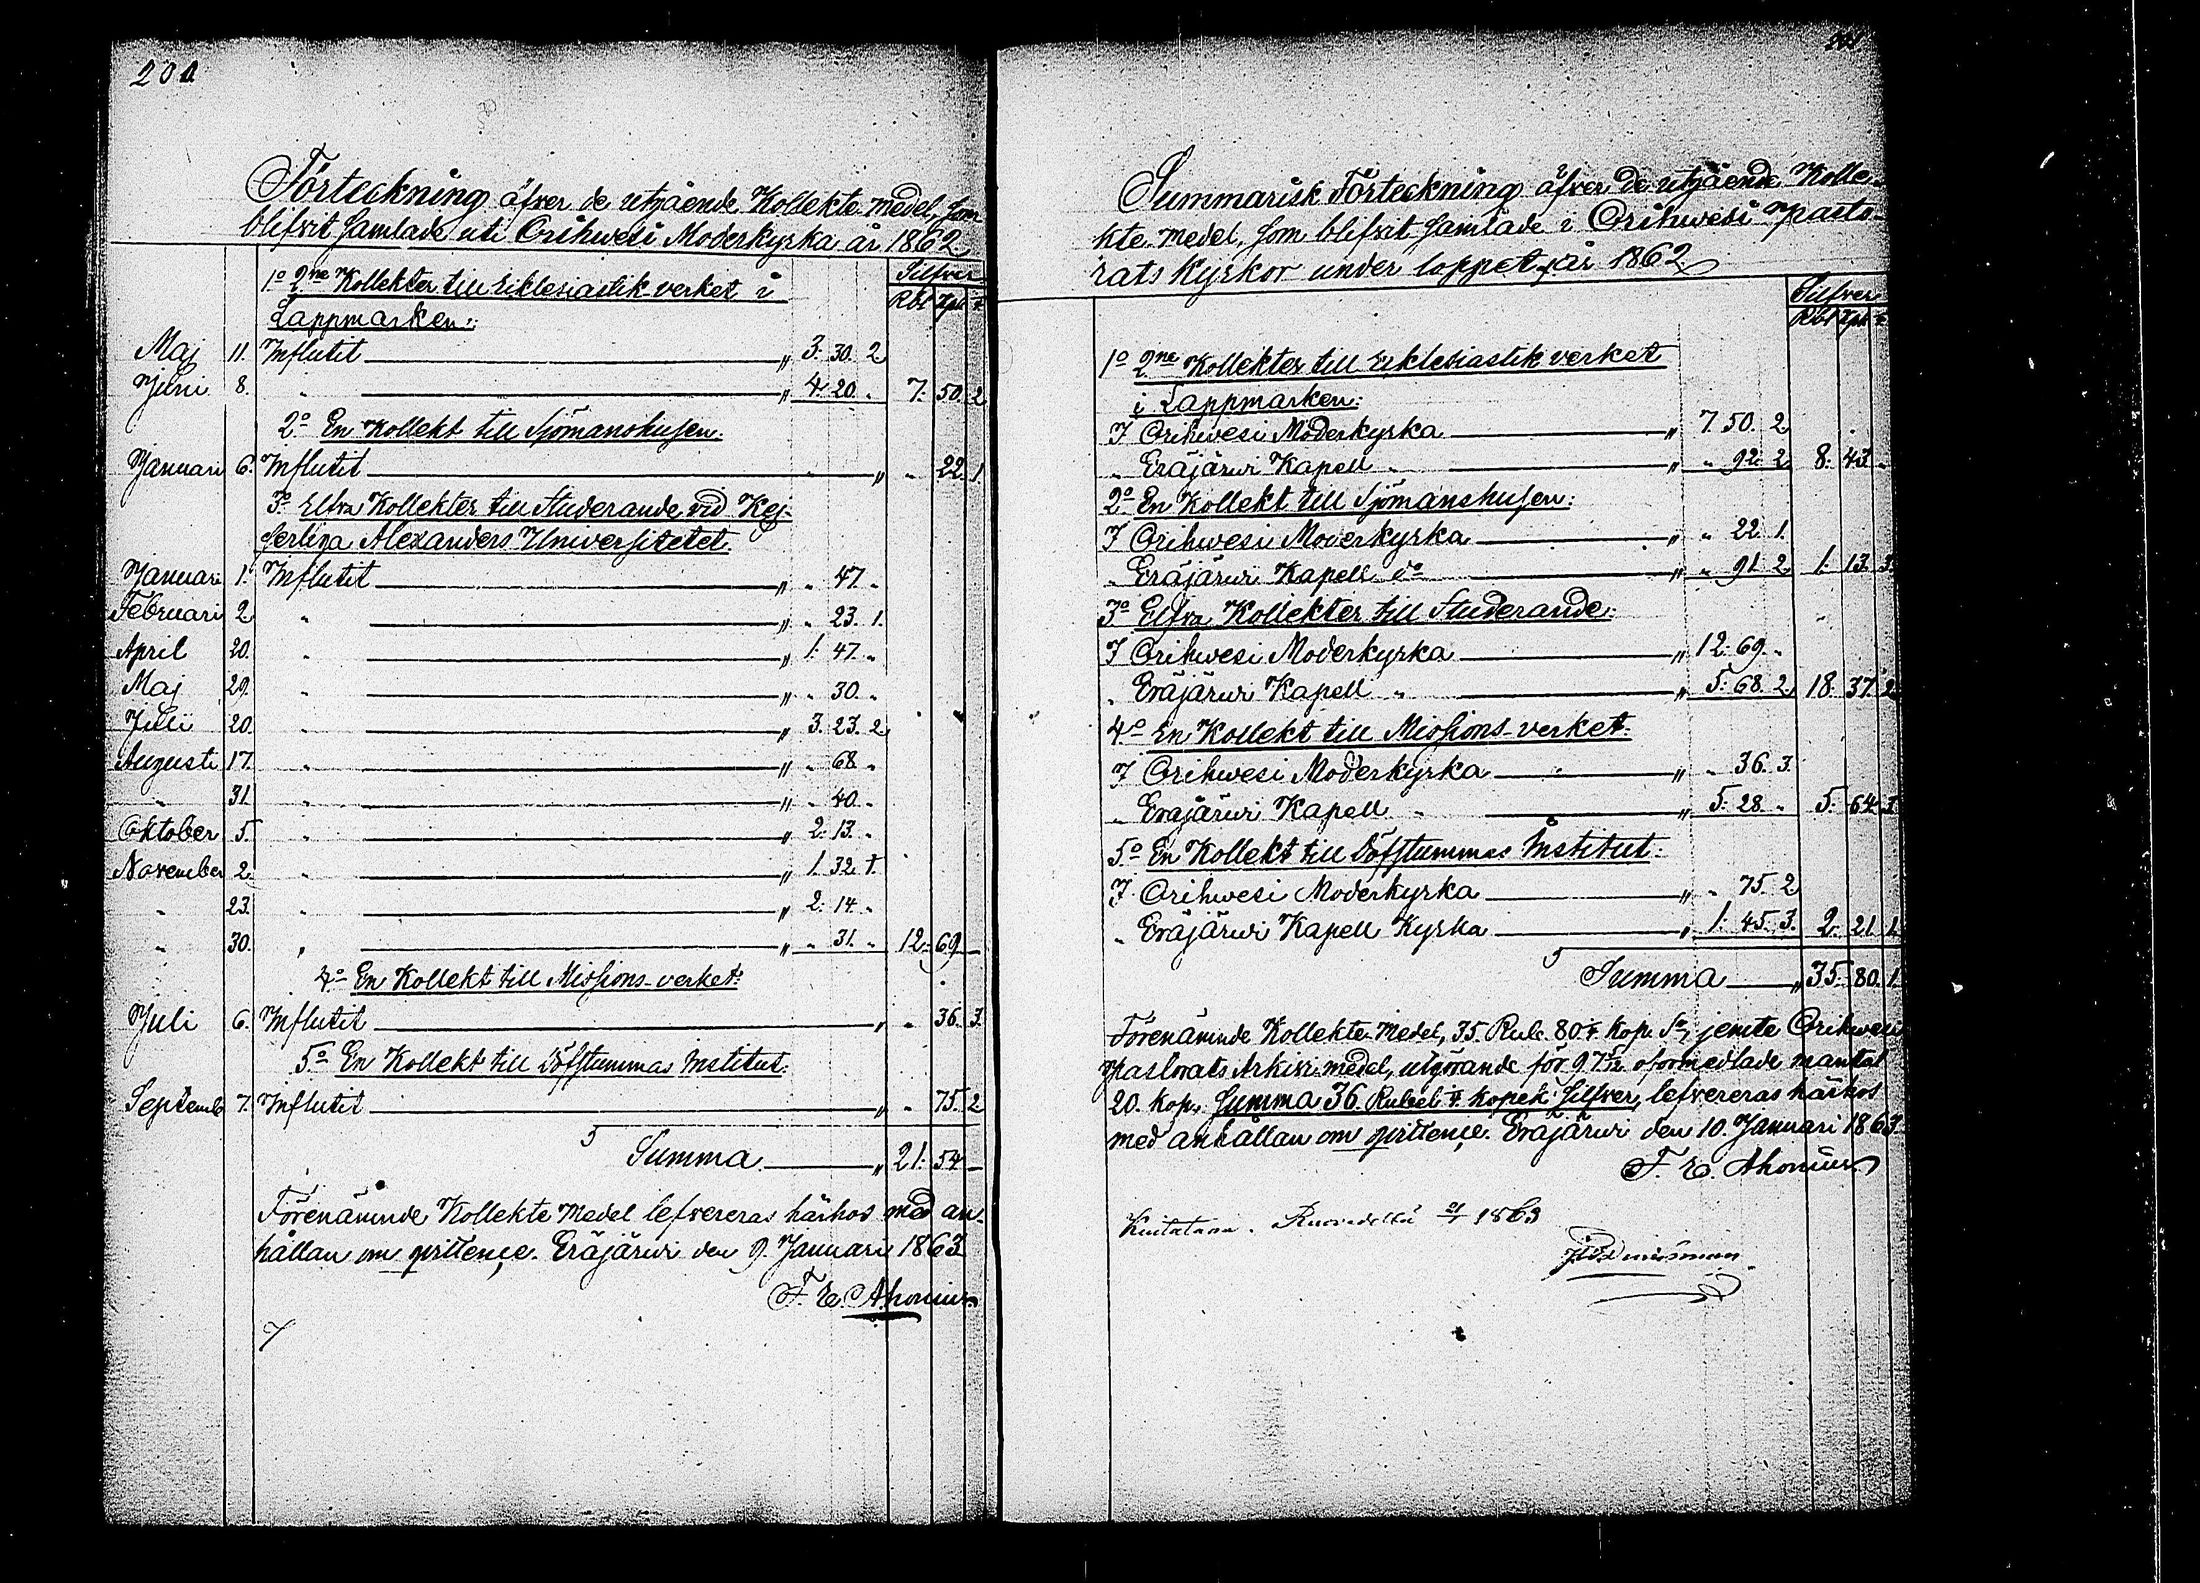 200
Förteckning öfver de utgående Kollekte medel, som
blifvit samlade uti Orihwesi Moderkyrka år 1862.
Silfver
1o 2ne Kollekter till Ecklesiastik-verket i
Rbl Kpk
Lappmarken:
Maj 11. Influtit „ 3. 30. 2
Juni 8. „ „ 4. 20. „ 7. 50. 2
2o En Kollekt till Sjömanshusen.
Januari 6. Influtit „ „ 22. 1
3o Elfva Kollekter till Studerande vid Kej-
serliga Alexanders Universitetet.
Januari 1. Influtit „ „ 47. „
Februari 2. „ „ „ 23. 1.
April 20. „ „ 1. 47. „
Maj 29. „ „ „ 30. „
Julii 20. „ „ 3. 23. 2
Augusti 17. „ „ „ 68. „
„ 31. „ „ „ 40. „
Oktober 5. „ „ 2. 13. „
November 2. „ „ 1. 32. 1.
„ 23. „ „ 2. 14. „
„ 30. „ „ „ 31. „ 12. 69. –
4o En Kollekt till Missions-verket:
Juli 6. Influtit „ „ 36. 3.
5o En Kollekt till Döfstummas Institut:
Septemb 7. Influtit „ „ 75. 2
Summa „ 21. 54 –
Förenämnde Kollekte Medel lefvereras härhos med an-
hållan om qvittençe. Eräjärwi den 9. Januari 1863
F. E. Ahonius
201
Summarisk Förteckning öfver de utgående Kolle-
kte medel, som blifvit samlade i Orihwesi Pasto-
rats Kyrkor under loppet af år 1862.
Silfver
Rbl Kpk
1o 2ne Kollekter till Ecklesiastik verket
i Lappmarken:
I Orihwesi Moderkyrka „ 7. 50. 2
„ Eräjärwi Kapell „ „ „ 92. 2 8. 43. „
2o En Kollekt till Sjömanshusen:
I Orihwesi Moderkyrka „ „ 22. 1.
„ Eräjärwi Kapell do „ „ 91. 2 1. 13. 3.
3o Elfva Kollekter till Studerande:
I Orihwesi Moderkyrka „ 12. 69. „
„ Eräjärwi Kapell „ „ 5. 68. 2 18. 37. 2
4o En Kollekt till Missions-verket:
I Orihwesi Moderkyrka „ „ 36. 3.
„ Eräjärwi Kapell „ „ 5. 28. „ 5. 64. 3.
5o En Kollekt till Döfstummas Institut:
I Orihwesi Moderkyrka „ „ 75. 2
„ Eräjärwi Kapell Kyrka „ 1. 45. 3. 2. 21. 1.
Summa „ 35. 80. 1.
Förenämnde Kollekte-Medel, 35. Rub. 80 1/4 kop. Sr, jemte Orihwesi
Pastorats Arkivi-medel, utgörande för 97 oförmedlade mantal
20. kop., Summa 36 Rubel 1/4 kopek Silfver, lefvereras härhos
med anhållan om qvittençe. Eräjärwi den 10. Januari 1863.
F. E. Ahonius
Kuitataan. Ruovedellä 1863